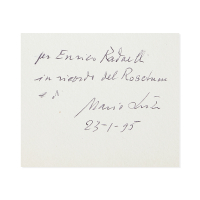 per Enrico Radaelli
in ricordo del Rosetum
e d
Mario Luzi
23-1-95